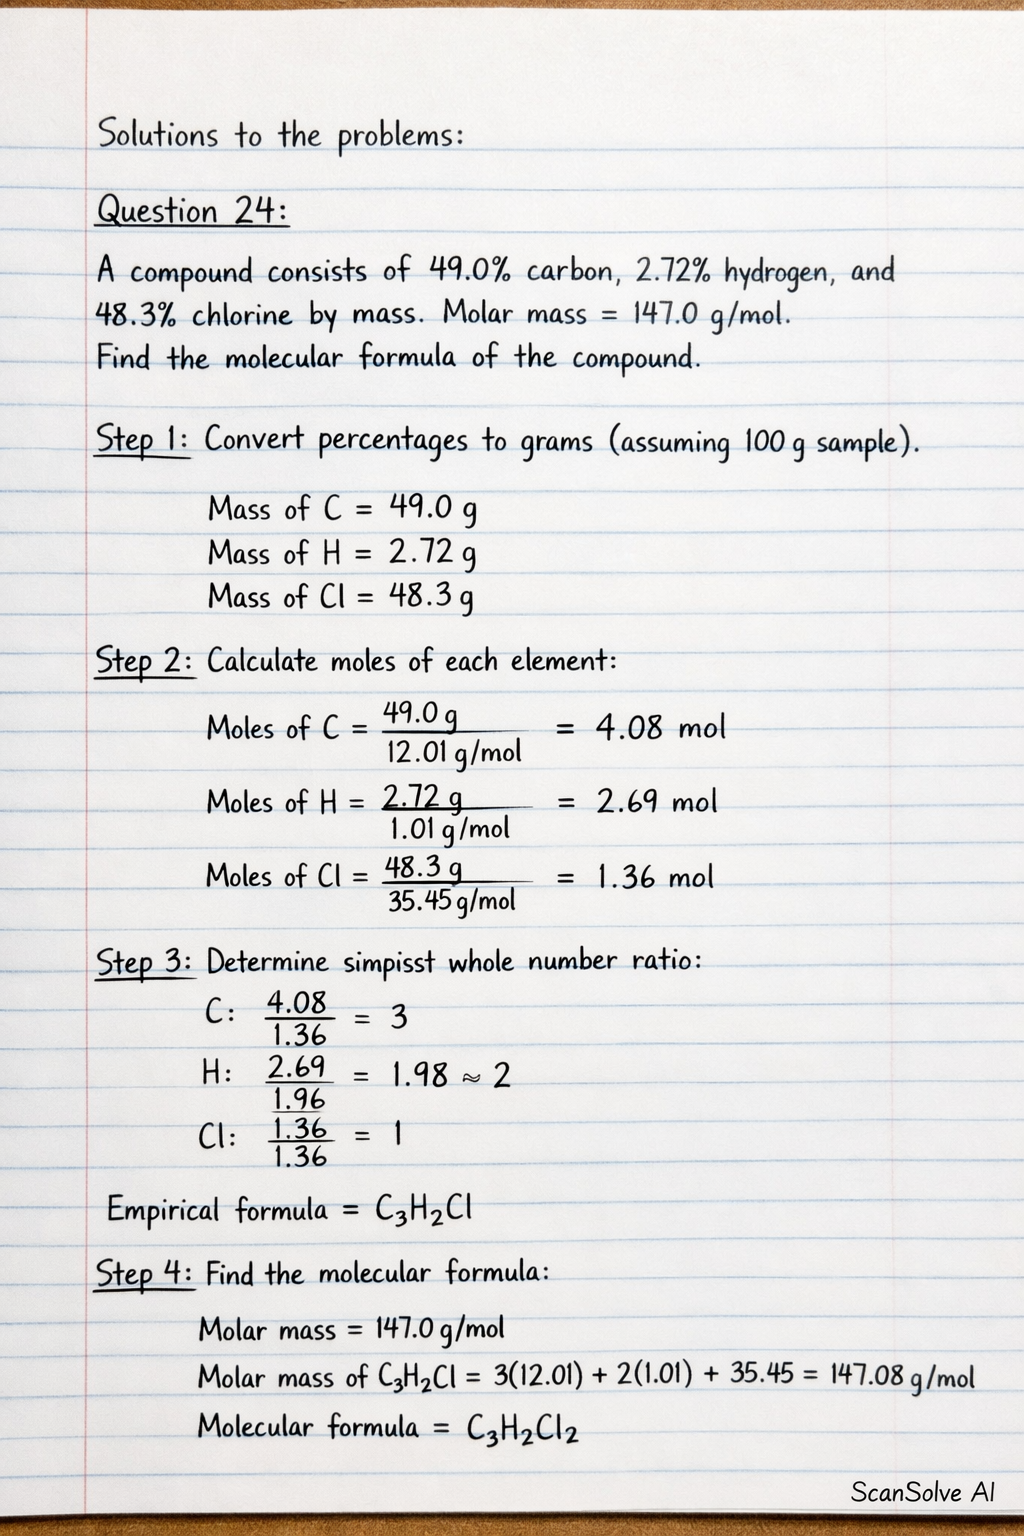 Solutions to the problems:
Question 24:
A compound consists of 49.0% carbon, 2.72% hydrogen, and
48.3% chlorine by mass. Molar mass = 147.0 g/mol.
Find the molecular formula of the compound.
Step 1: Convert percentages to grams (assuming 100 g sample).
Mass of C = 49.0 g
Mass of H = 2.72 g
Mass of Cl = 48.3 g
Step 2: Calculate moles of each element:
Moles of C = 49.0 g / 12.01 g/mol = 4.08 mol
Moles of H = 2.72 g / 1.01 g/mol = 2.69 mol
Moles of Cl = 48.3 g / 35.45 g/mol = 1.36 mol
Step 3: Determine simpisst whole number ratio:
C: 4.08 / 1.36 = 3
H: 2.69 / 1.96 = 1.98 ≈ 2
Cl: 1.36 / 1.36 = 1
Empirical formula = C₃H₂Cl
Step 4: Find the molecular formula:
Molar mass = 147.0 g/mol
Molar mass of C₃H₂Cl = 3(12.01) + 2(1.01) + 35.45 = 147.08 g/mol
Molecular formula = C₃H₂Cl₂
ScanSolve AI